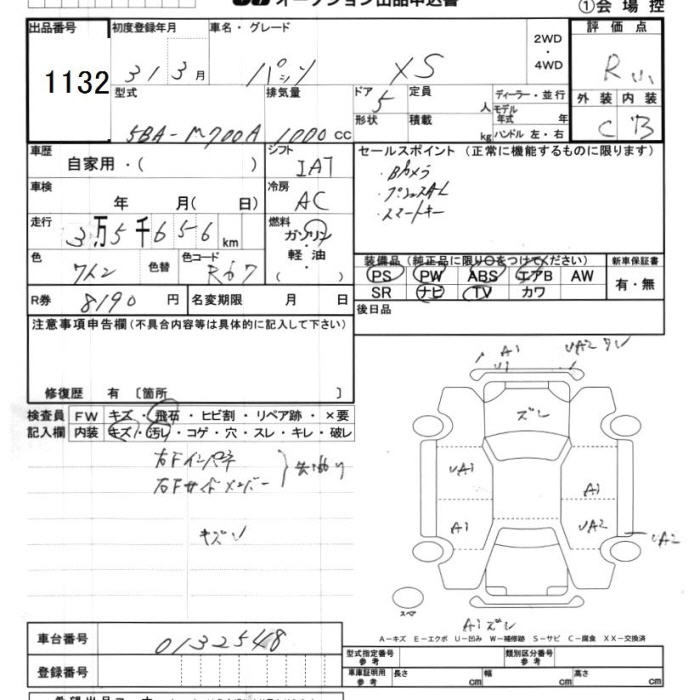 オークション出品申込書
①会場控
出品番号 初度登録年月 車名・グレード 評価点
1132 31 3月 パッソ XS 2WD・4WD R
外装 内装
C B
型式 排気量 ドア 定員 人 ディーラー・並行
モデル年式 年
5BA-M700A 1000cc 5 形状 積載 kg ハンドル 左・右
車歴 自家用・( ) シフト IAT セールスポイント (正常に機能するものに限ります)
・Bカメラ
・スマートキー
車検 年 月( 日) 冷房 AC
走行 3万5千656km 燃料 ガソリン・軽油・( )
色 ワイン 色替 色コード R67
装備品 (純正品に限り○をつけてください) 新車保証書
PS PW ABS エアB AW 有・無
SR ナビ TV カワ
R券 8190円 名変期限 月 日 後日品
注意事項申告欄(不具合内容等は具体的に記入して下さい)
修復歴 有 〔箇所 〕
検査員記入欄 FW キズ・飛石・ヒビ割・リペア跡・×要
内装 キズ・汚レ・コゲ・穴・スレ・キレ・破レ
右Fインパネ
右Fサイドメンバー
キズ
A1
U1
UA2
ズレ
UA1
A1
A1
UA2
UA2
スペア
A1ズレ
A-キズ E-エクボ U-凹み W-補修跡 S-サビ C-腐食 XX-交換済
車台番号 0132548
登録番号
型式指定番号 参考 類別区分番号 参考
車庫証明用 参考 長さ cm 幅 cm 高さ cm